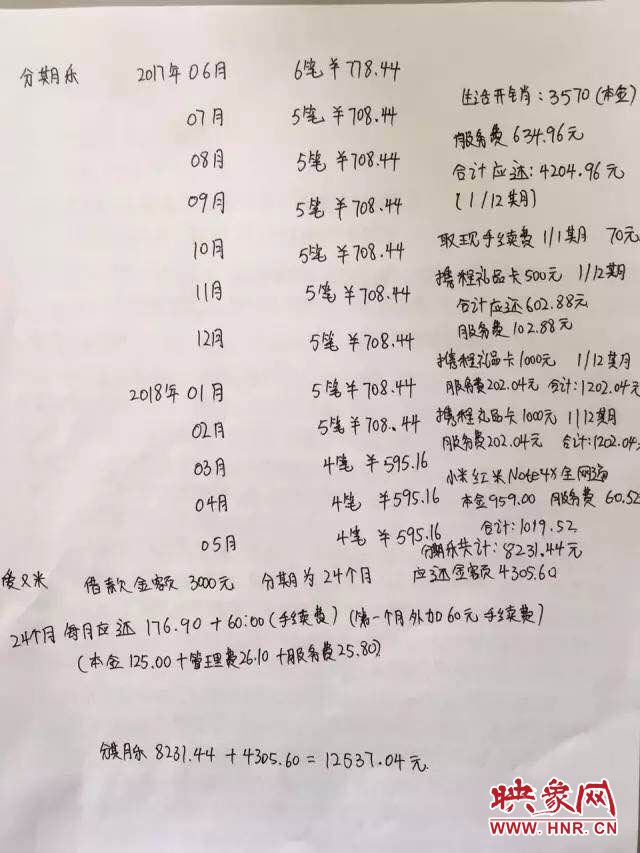 分期乐 2017年06月 6笔¥778.44
07月 5笔¥708.44
08月 5笔¥708.44
09月 5笔¥708.44
10月 5笔¥708.44
11月 5笔¥708.44
12月 5笔¥708.44
2018年01月 5笔¥708.44
02月 5笔¥708.44
03月 4笔¥595.16
04月 4笔¥595.16
05月 4笔¥595.16
生活开销:3570(本金)
服务费634.96元
合计应还:4204.96元
(1/12期)
取现手续费1/1期 70元
携程礼品卡500元 1/12期
合计应还602.88元
服务费102.88元
携程礼品卡1000元 1/12期
服务费202.04元 合计:1202.04元
携程礼品卡1000元 1/12期
服务费202.04元 合计:1202.04元
小米红米Note4X全网通
本金959.00 服务费60.52
合计:1019.52
分期乐共计:8231.44元
爱又米 借款金额3000元 分期为24个月 应还金额4305.60
24个月每月应还176.90+60:00(手续费)(第一个月外加60元手续费)
(本金125.00+管理费26.10+服务费25.80)
分期乐8231.44+4305.60=12537.04元
映象网
WWW.HNR.CN